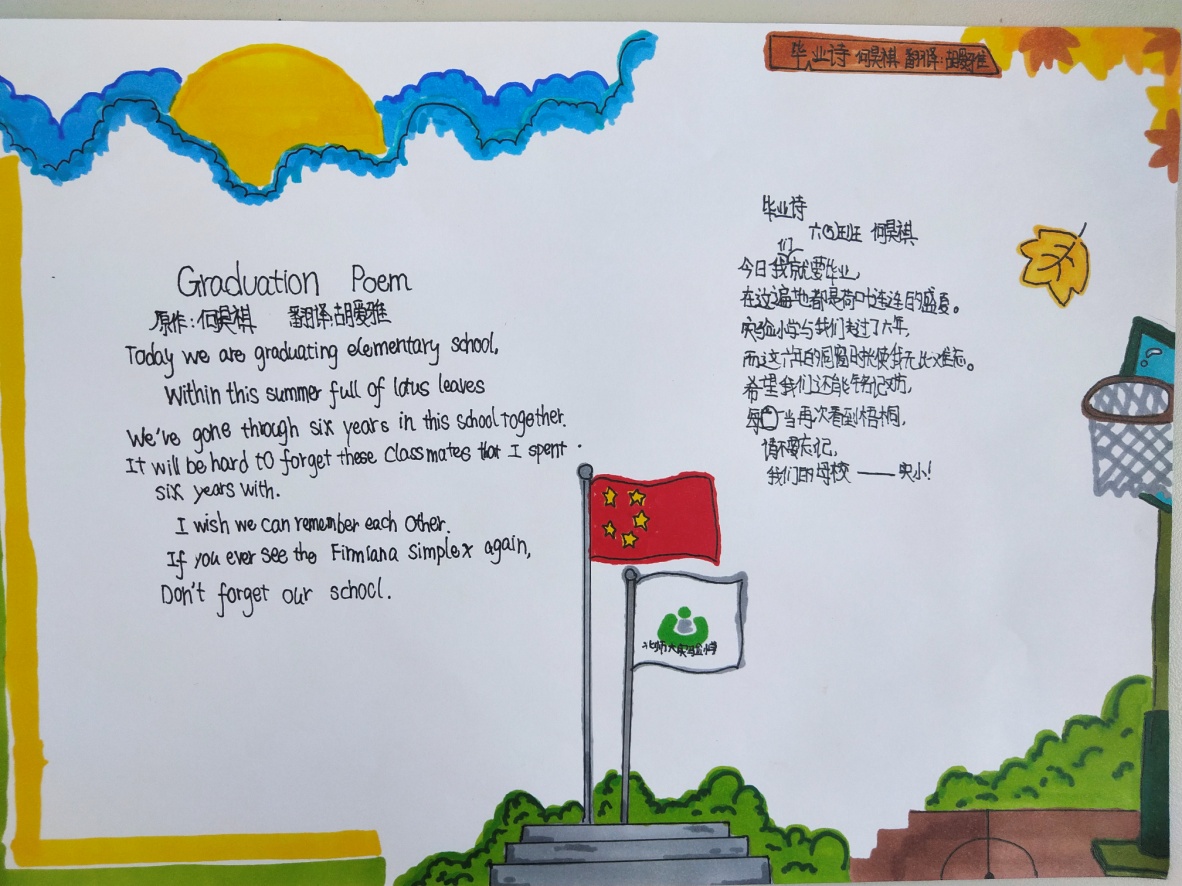 毕业诗 何昊祺 翻译:胡爱雅
Graduation Poem
原作:何昊祺 翻译:胡爱雅
Today we are graduating elementary school,
Within this summer full of lotus leaves
We've gone through six years in this school together.
It will be hard to forget these classmates that I spent
six years with.
I wish we can remember each other.
If you ever see the Firmiana simplex again,
Don't forget our school.
毕业诗
六四班 何昊祺
今日我们就要毕业,
在这遍地都是荷叶连连的盛夏。
实验小学与我们走过了六年,
而这六年的同窗时光使我无比难忘。
希望我们还能铭记对方,
每当再次看到梧桐,
请不要忘记,
我们的母校——实小!
北师大实验小学